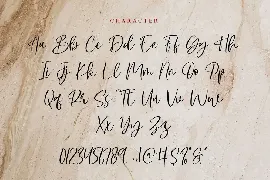 CHARACTER
Aa Bb Cc Dd Ee Ff Gg Hh
Ii Jj Kk Ll Mm Nn Oo Pp
Qq Rr Ss Tt Uu Vv Ww
Xx Yy Zz
0123456789